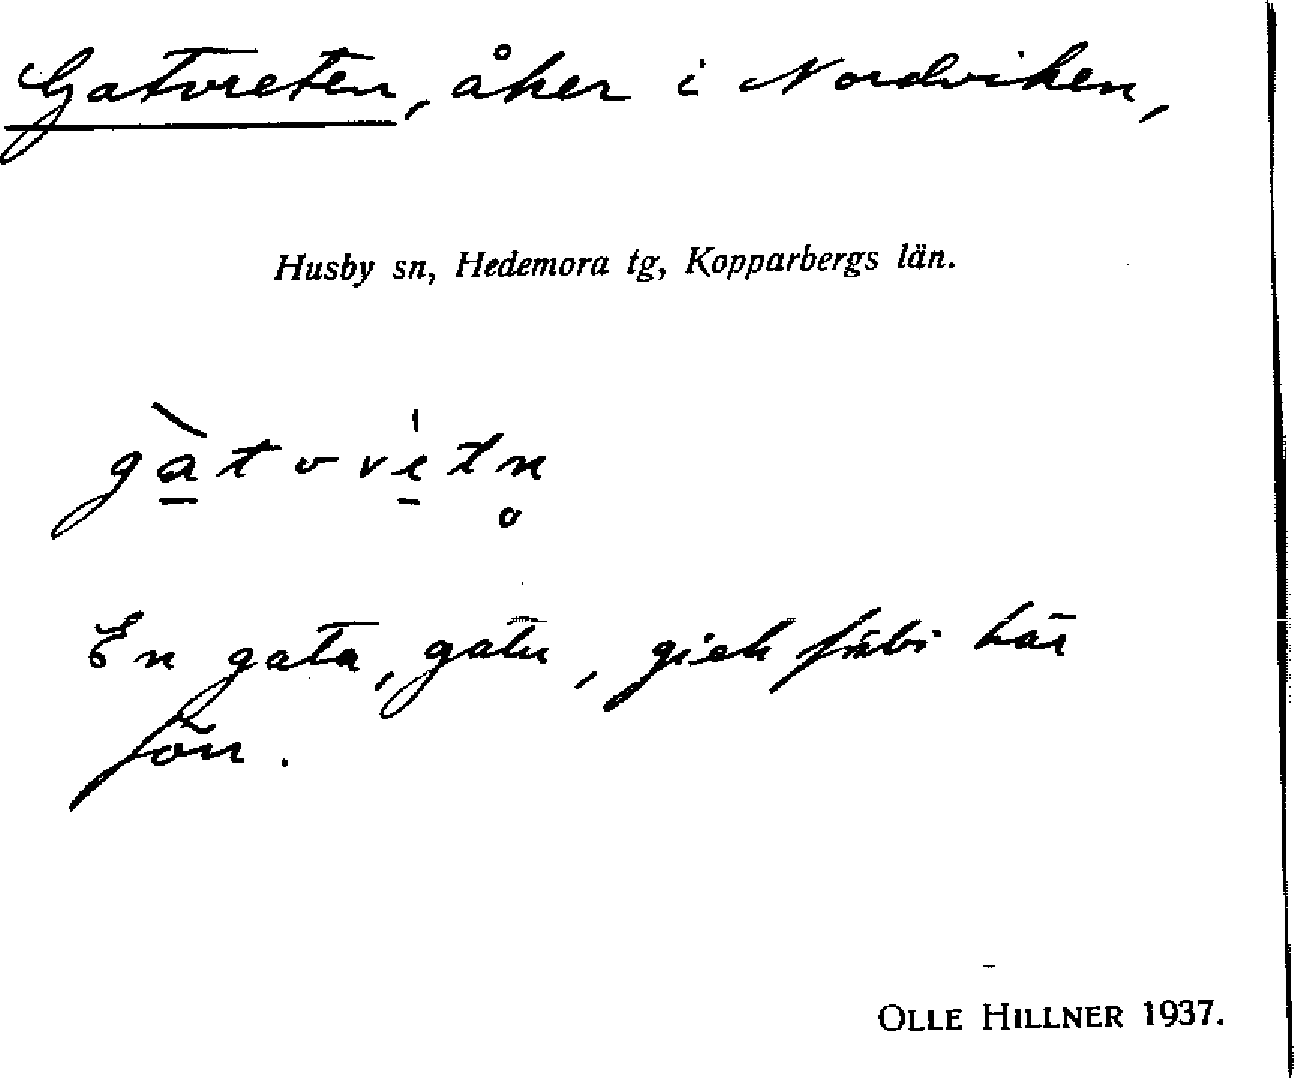 Gatvreten, åker i Nordviken,
Husby sn, Hedemora tg, Kopparbergs län.
gàtvretn̥
En gata, gatu, gick förbi här
förr.
OLLE HILLNER 1937.